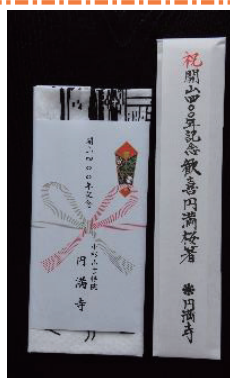 祝開山四〇〇年記念歓喜円満桜箸
円満寺
開山四〇〇年記念
円満寺